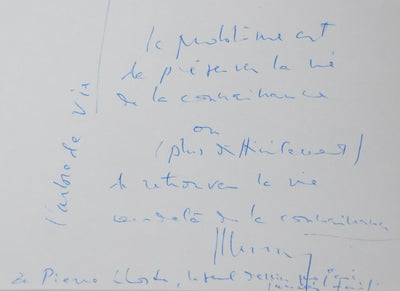 le problème est
de préserver la vie
de la connaissance
ou
(plus difficilement)
de retrouver la vie
au delà de la connaissance
l'arbre de vie
à Pierre